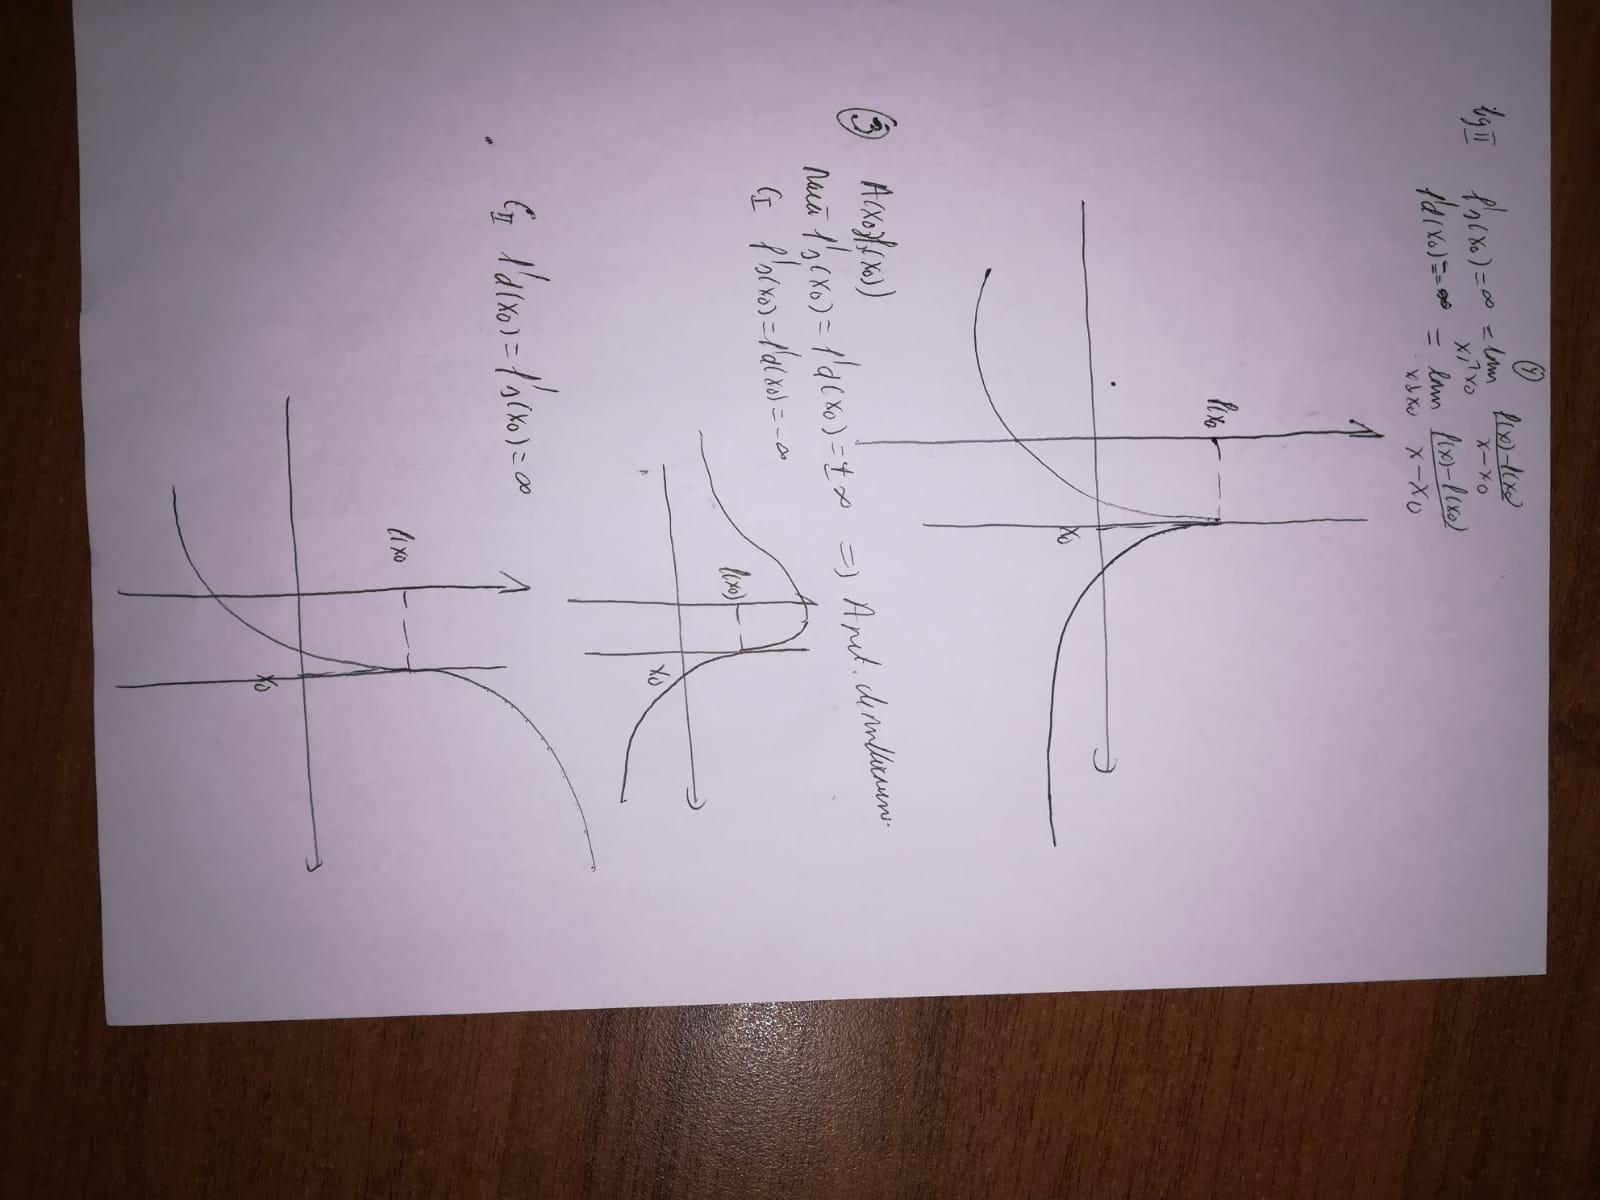 ④
f's(x₀) = ∞ = lim x↗x₀ f(x)-f(x₀) / x-x₀
f'd(x₀) = -∞ = lim x↓x₀ f(x)-f(x₀) / x-x₀
f(x₀
x₀
③ A(x₀, f(x₀))
Dacă f's(x₀) = f'd(x₀) = ±∞ => A pct. de inflexiune.
C_I f's(x₀) = f'd(x₀) = -∞
f(x₀)
x₀
C_II f'd(x₀) = f's(x₀) = ∞
f(x₀
x₀